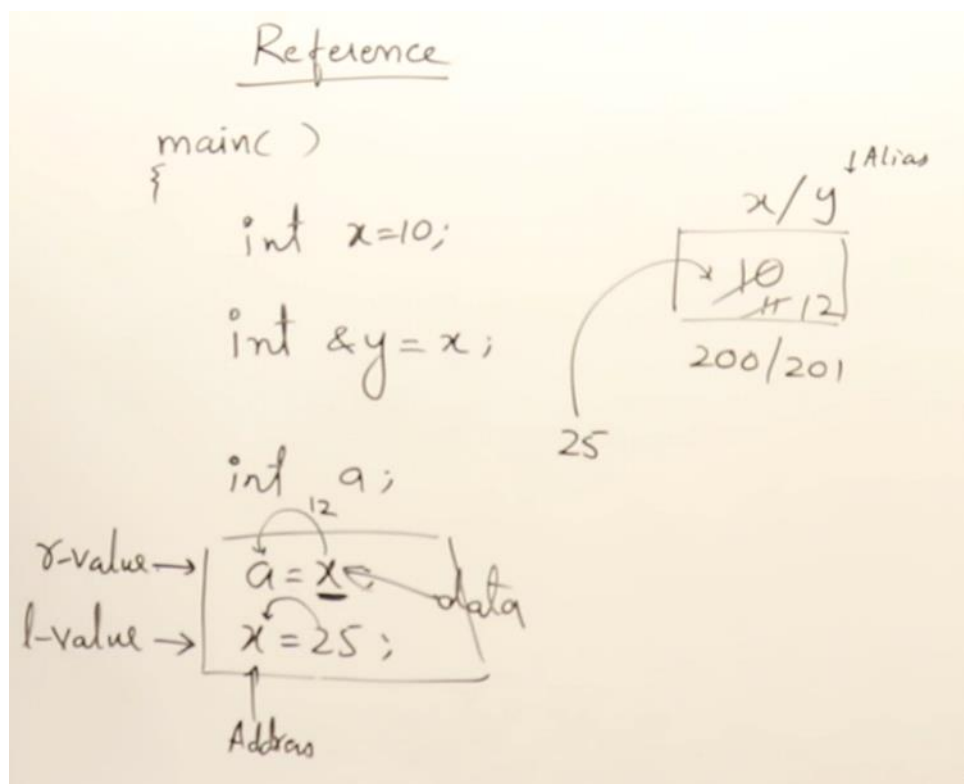 Reference
main( )
{
int x=10;
int &y=x;
int a;
12
r-value→ a=x;
l-value→ x=25;
Address
data
↓Alias
x/y
10
11 12
200/201
25